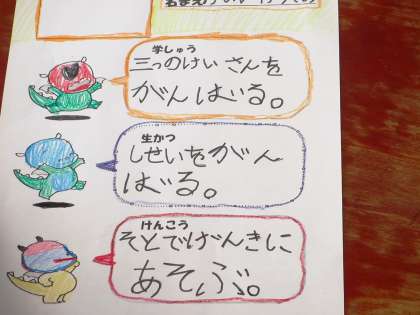 学しゅう
三っのけいさんを
がんばる。
生かつ
しせいをがん
ばる。
けんこう
そとでげんきに
あそぶ。